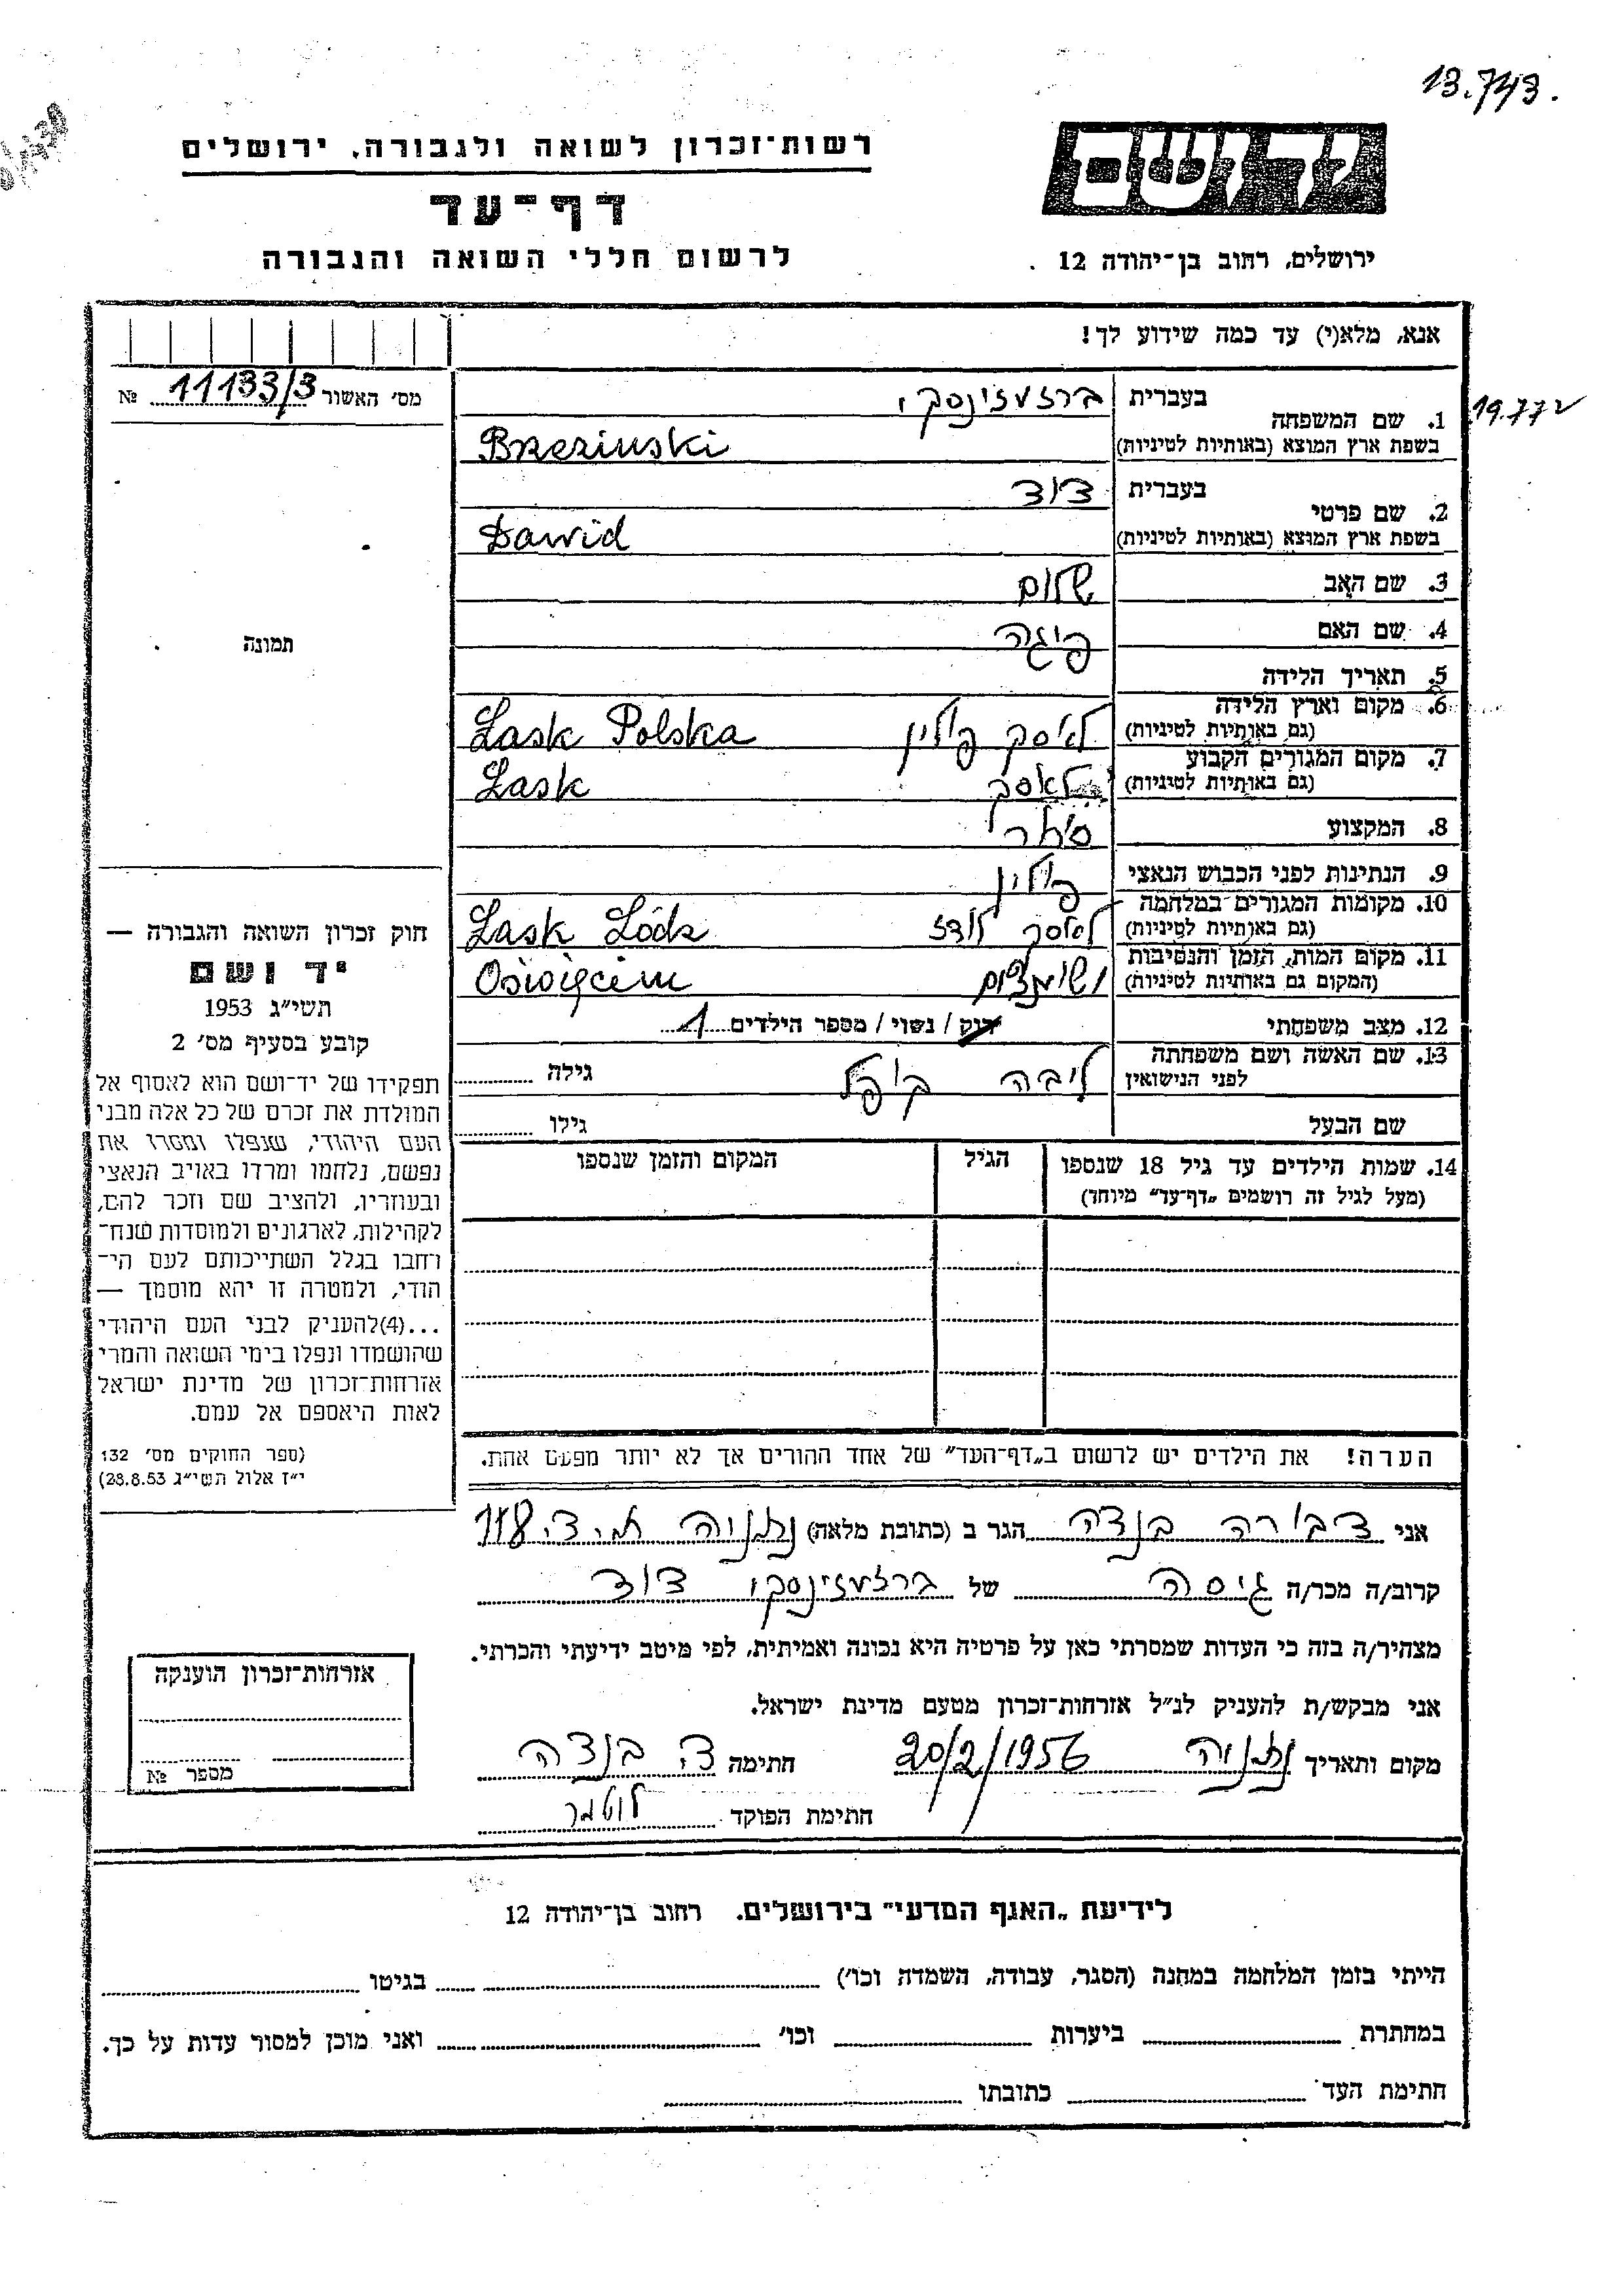 13.743.
רשות־זכרון לשואה ולגבורה, ירושלים
דף־עד
לרשום חללי השואה והגבורה
יד ושם
ירושלים, רחוב בן־יהודה 12
אנא, מלא(י) עד כמה שידוע לך!
מס' האשור 11133/3 №
19.772
1. שם המשפחה
בעברית ברזעזינסקי
בשפת ארץ המוצא (באותיות לטיניות) Brezinski
2. שם פרטי
בעברית דוד
בשפת ארץ המוצא (באותיות לטיניות) Dawid
3. שם האב שלום
4. שם האם פיגה
5. תאריך הלידה
6. מקום וארץ הלידה
(גם באותיות לטיניות) לאסק פולין Łask Polska
7. מקום המגורים הקבוע
(גם באותיות לטיניות) לאסק Łask
8. המקצוע סוחר
9. הנתינות לפני הכבוש הנאצי פולין
10. מקומות המגורים במלחמה
(גם באותיות לטיניות) לאסק לודז Łask Łódz
11. מקום המות, הזמן והנסיבות
(המקום גם באותיות לטיניות) Oświęcim
12. מצב משפחתי רוק / נשוי / מספר הילדים 1
13. שם האשה ושם משפחתה
לפני הנישואין ליבה גילה
שם הבעל גילו
14. שמות הילדים עד גיל 18 שנספו
(מעל לגיל זה רושמים „דף־עד" מיוחד)
הגיל
המקום והזמן שנספו
תמונה
חוק זכרון השואה והגבורה —
יד ושם
תשי"ג 1953
קובע בסעיף מס' 2
תפקידו של יד־ושם הוא לאסוף אל
המולדת את זכרם של כל אלה מבני
העם היהודי, שנפלו ומסרו את
נפשם, נלחמו ומרדו באויב הנאצי
ובעוזריו, ולהציב שם וזכר להם,
לקהילות, לארגונים ולמוסדות שנח־
רחבו בגלל השתייכותם לעם הי־
הודי, ולמטרה זו יהא מוסמך —
...(4)להעניק לבני העם היהודי
שהושמדו ונפלו בימי השואה והמרי
אזרחות־זכרון של מדינת ישראל
לאות היאספם אל עמם.
(ספר החוקים מס' 132
י"ז אלול תשי"ג 28.8.53)
הערה! את הילדים יש לרשום ב„דף־העד" של אחד ההורים אך לא יותר מפעם אחת.
אני דבורה בנדה הגר ב (כתובת מלאה) נתניה
קרוב/ה מכר/ה גיסה של ברזעזינסקי דוד
מצהיר/ה בזה כי העדות שמסרתי כאן על פרטיה היא נכונה ואמיתית, לפי מיטב ידיעתי והכרתי.
אני מבקש/ת להעניק לנ"ל אזרחות־זכרון מטעם מדינת ישראל.
מקום ותאריך נתניה 20/2/1956 חתימה ד. בנדה
חתימת הפוקד
אזרחות־זכרון הוענקה
מספר №
לידיעת „האגף המדעי" בירושלים, רחוב בן־יהודה 12
הייתי בזמן המלחמה במחנה (הסגר, עבודה, השמדה וכו') בגיטו
במחתרת ביערות וכו' ואני מוכן למסור עדות על כך.
חתימת העד כתובתו